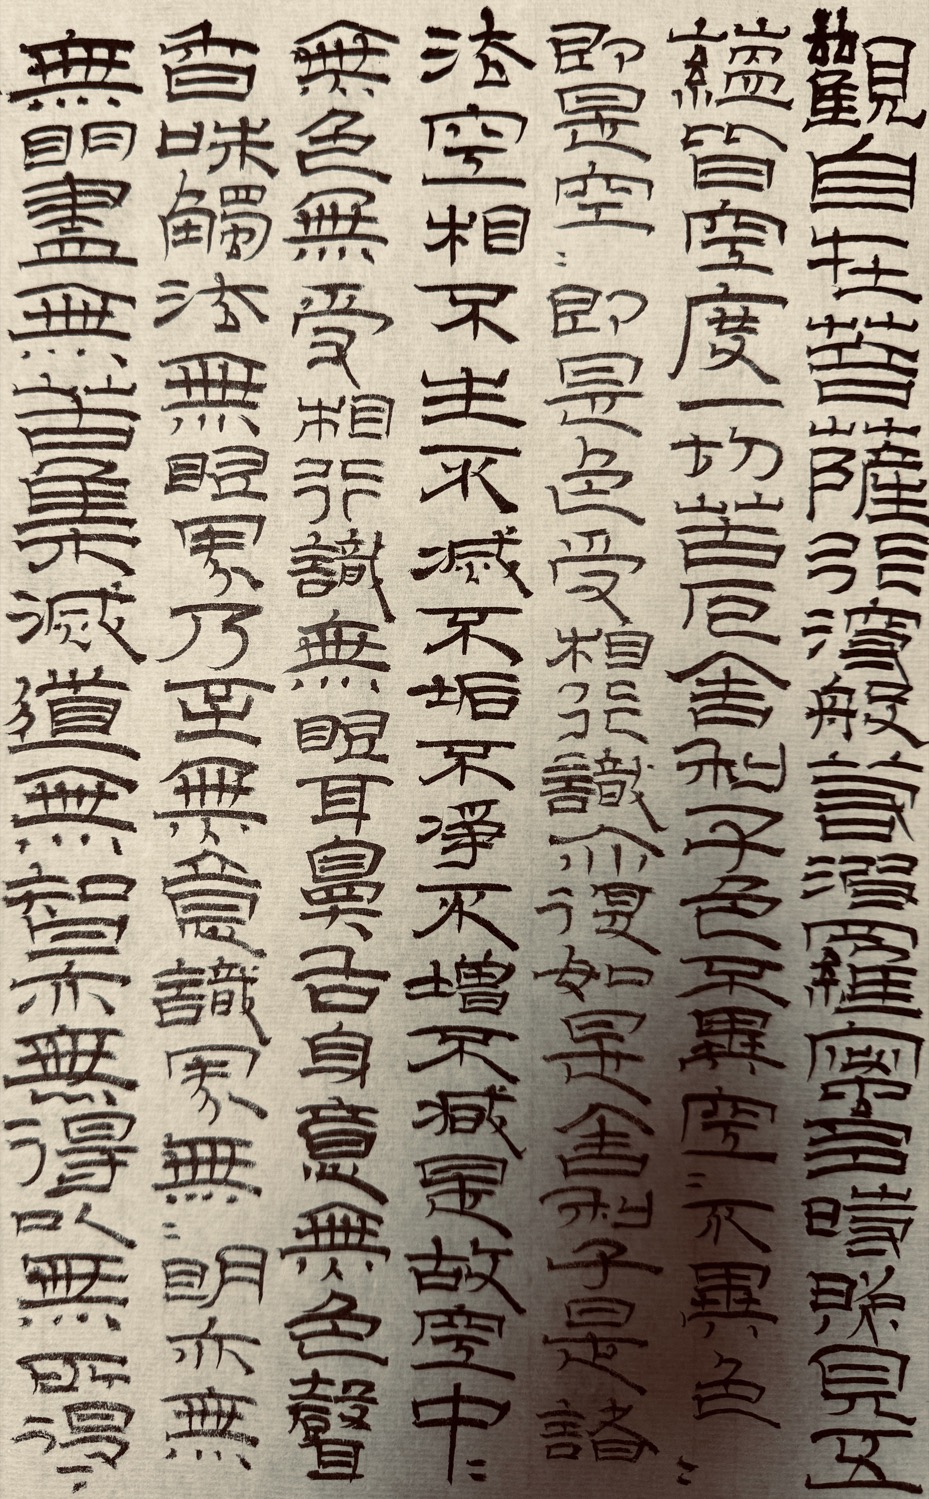 觀自在菩薩行深般若波羅蜜多時照見五
蘊皆空度一切苦厄舍利子色不異空〻不異色〻
即是空〻即是色受相行識亦復如是舍利子是諸
法空相不生不滅不垢不淨不增不減是故空中〻
無色無受相行識無眼耳鼻舌身意無色聲
香味觸法無眼界乃至無意識界無〻明亦無
無明盡無苦集滅道無智亦無得以無所得〻